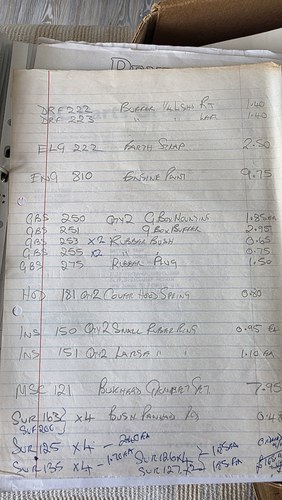 DRF 222 BUFFER 1/4 LSHH RT 1.40
DRF 223 " " LEFT 1.40
ELG 222 EARTH STRAP 2.50
ENG 810 ENGINE PAINT 9.75
GBS 250 QTY 2 G BOX MOUNTING 1.85 EA
GBS 251 G BOX BUFFER 2.95
GBS 253 X2 RUBBER BUSH 0.65
GBS 255 X2 " " 0.75
GBS 275 RUBBER PLUG 1.50
HOD 181 QTY 2 COVER HOOD SPRING 0.80
INS 150 QTY 2 SMALL RUBBER RING 0.95 EA
INS 151 QTY 2 LARGE " " 1.10 EA
MSC 121 BULKHEAD GROMMET SET 7.95
SUR 163 X4 BUSH PANHARD
SUF 200
SUR 125 X4 -
SUR 135 X4 - 1.70 EA SUR 126 X4 - 1.85 EA
SUR 127 X2 - 1.85 EA